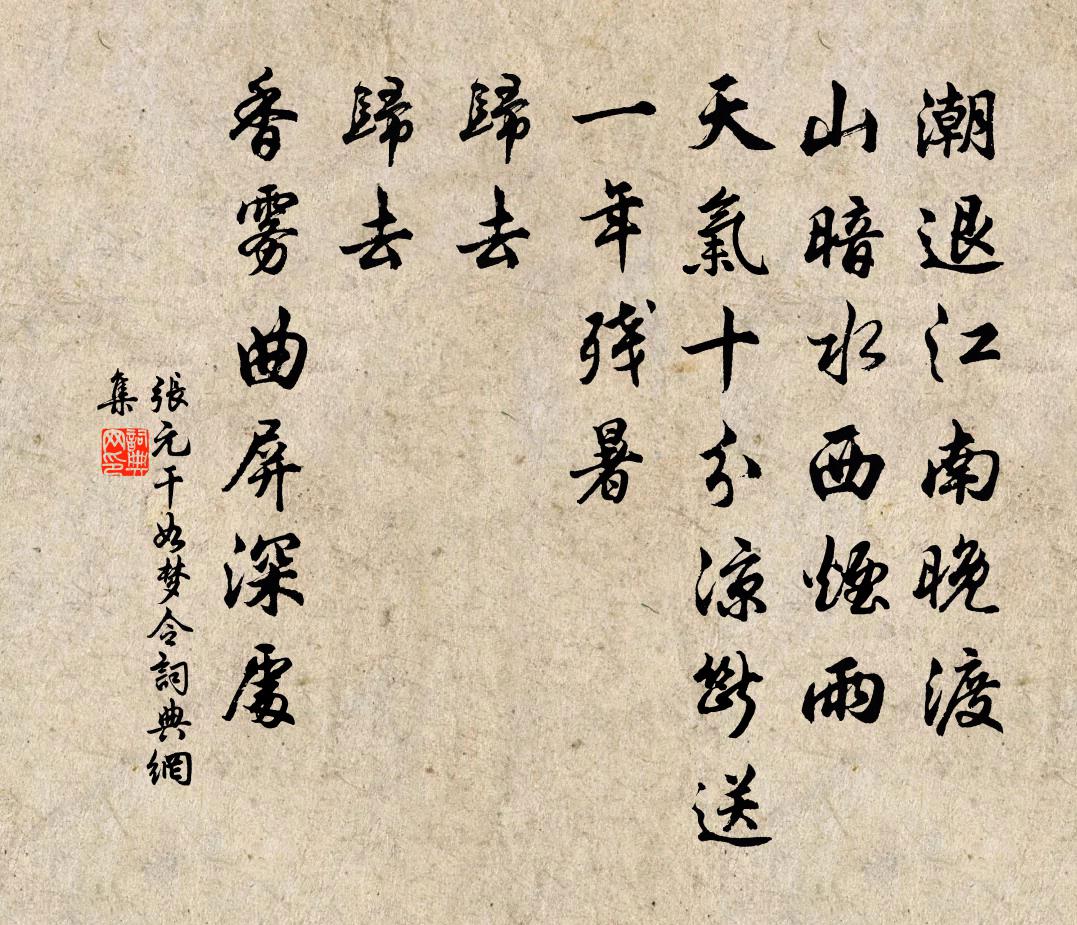 潮退江南晚渡
山暗水西煙雨
天氣十分涼斷送
一年残暑
歸去
歸去
香雾曲屏深處
張元干如梦令詞典網
集
詞典
网印